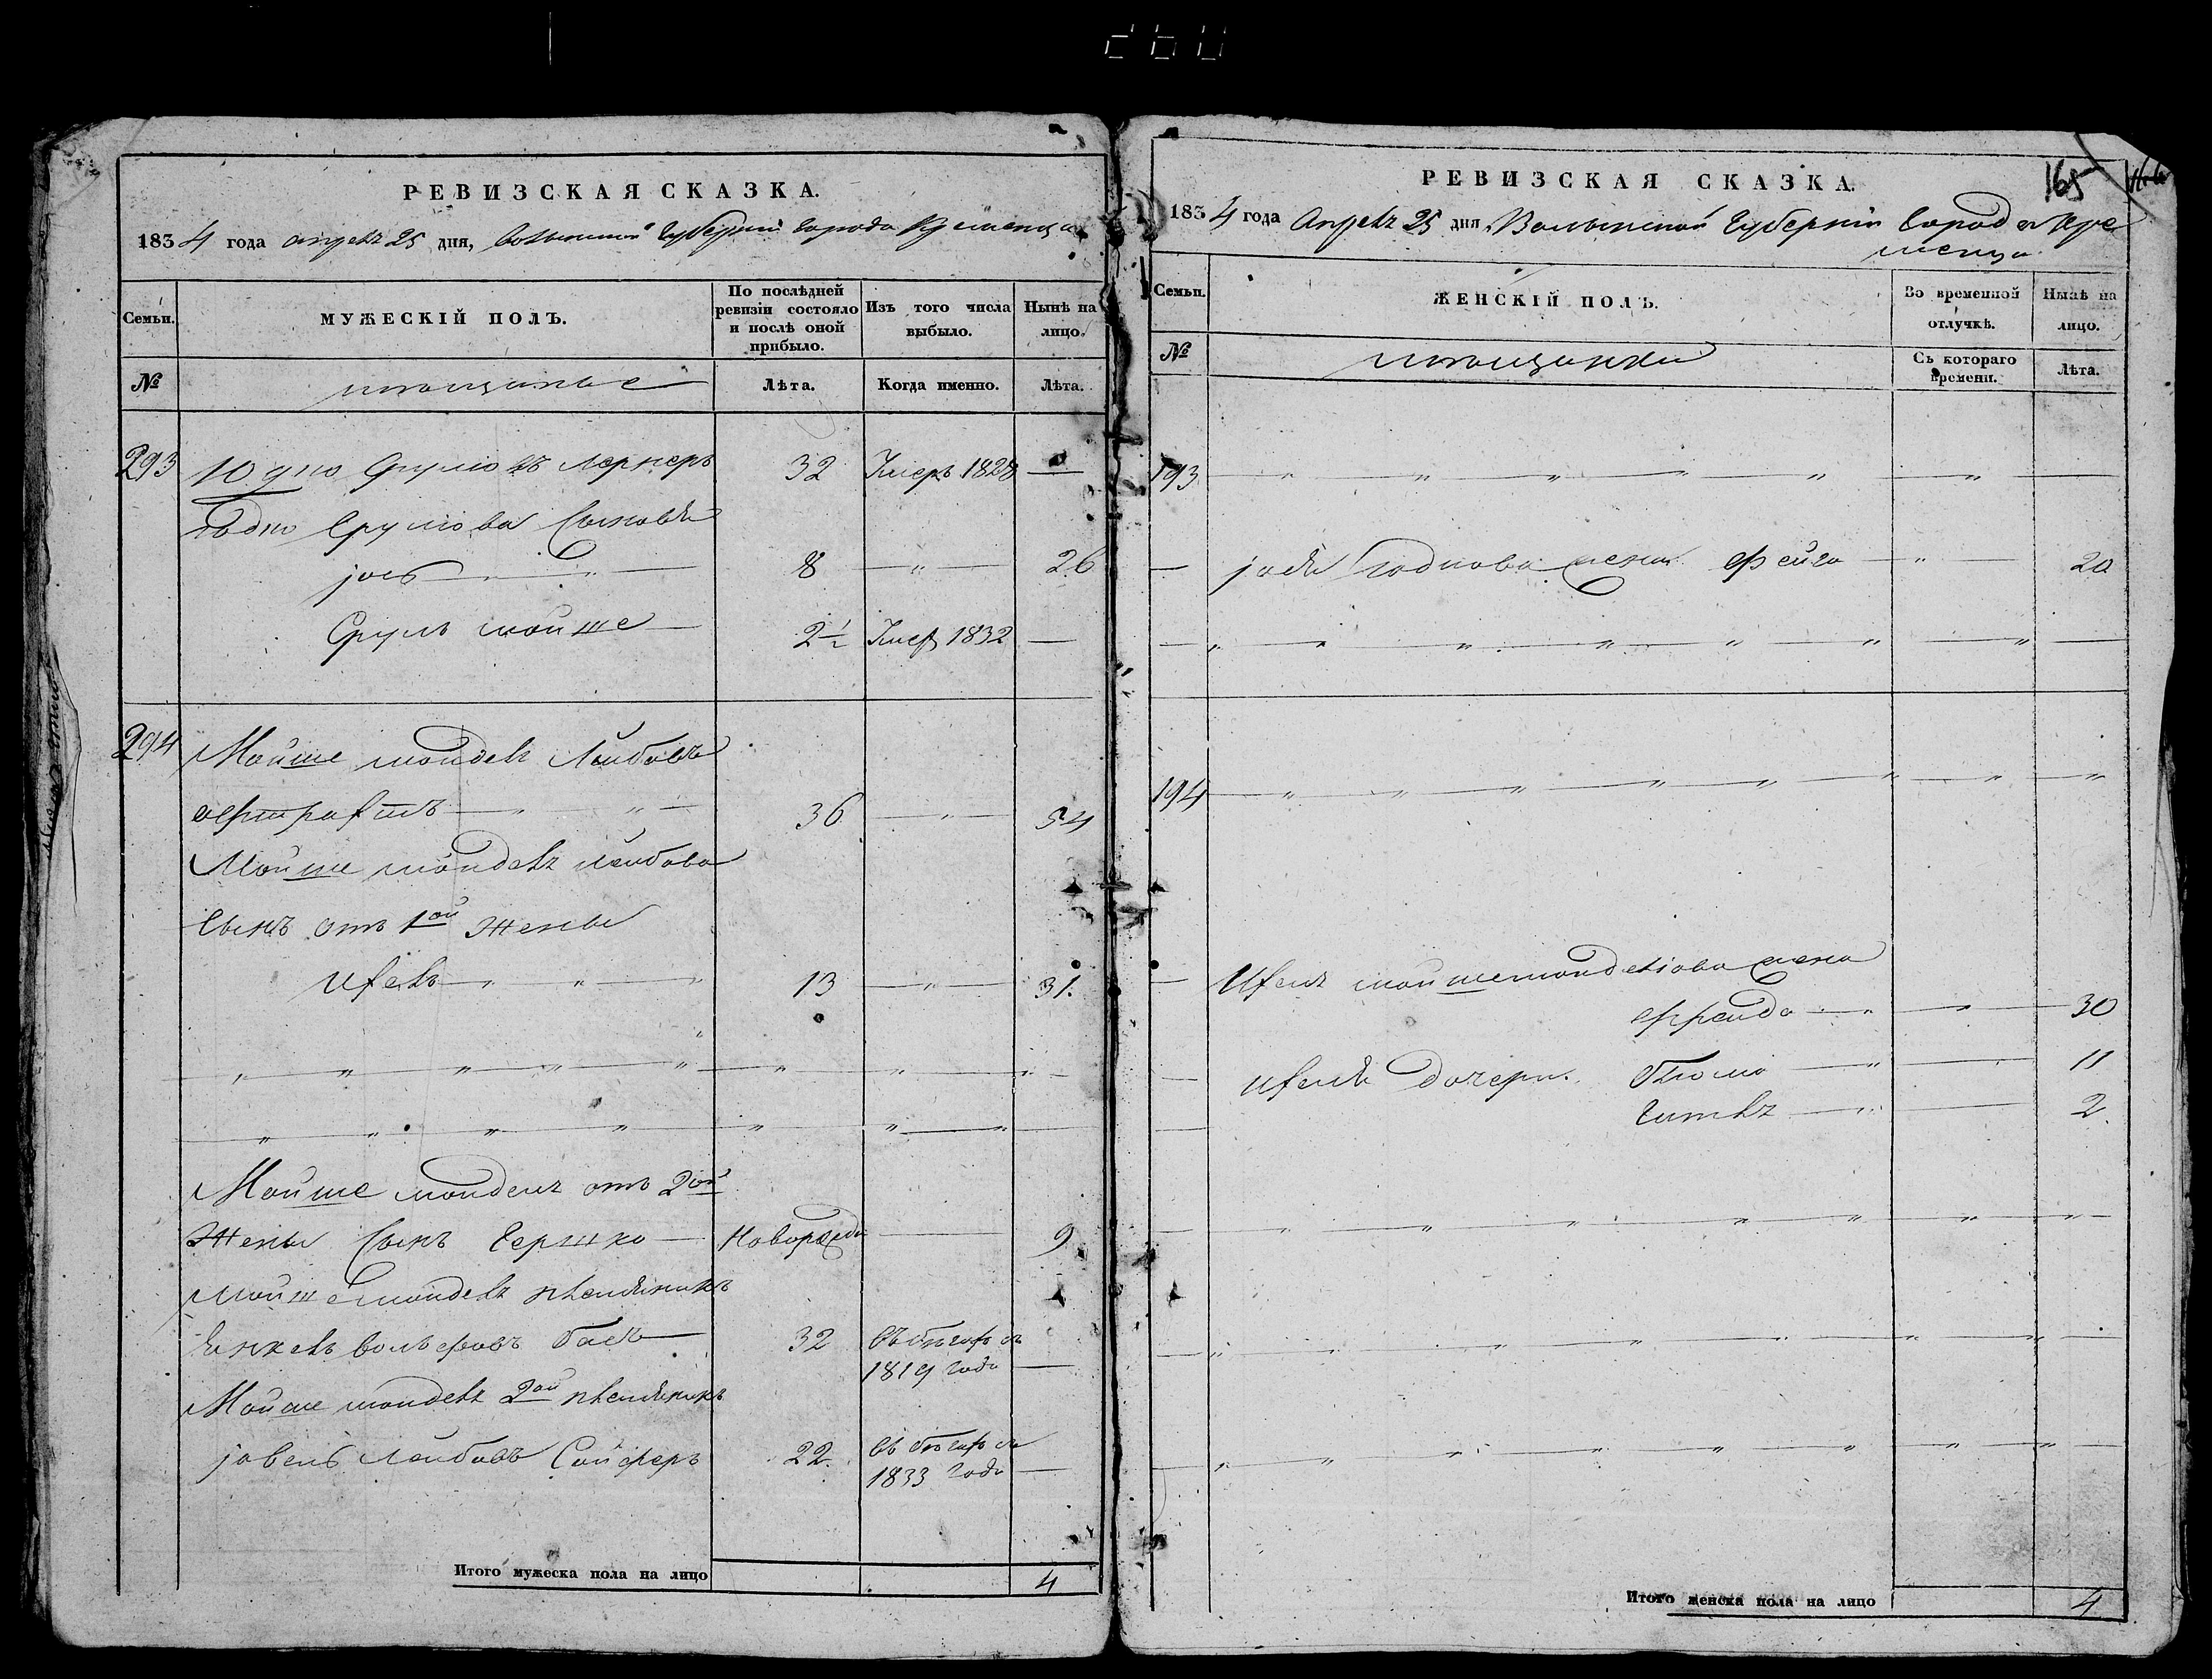 260
РЕВИЗСКАЯ СКАЗКА.
1834 года апреля 25 дня, Волынской Губернии Города Кременца
Семьи.
МУЖЕСКІЙ ПОЛЪ.
По послѣдней ревизіи состояло и послѣ оной прибыло.
Изъ того числа выбыло.
Нынѣ на лицо.
№
мѣщанье
Лѣта.
Когда именно.
Лѣта.
293 Срулювъ Лернеръ 32 Умеръ 1828 —
Срулюва Сыновья
8 — " — 26
Сруль мойше — 2½ Умеръ 1832 —
294 Мойше мондель Лейбовъ
36 — " — 54
Мойше мондель лейбова
Сынъ отъ 1ой Жены
13 — " — 31.
Мойше мондель отъ 2ой
Жены Сынъ Гершко — Новорожде — 9
Мойше мондель племяникъ
Янкель вольфовъ 32 Въ бѣгахъ съ
1819 года —
Мойше мондель 2ой племяникъ
Лейбовъ Сойферъ 22. Въ бѣгахъ съ
1833 года —
Итого мужеска пола на лицо 4
165
РЕВИЗСКАЯ СКАЗКА.
1834 года Апреля 25 дня Волынской Губерніи Города Кре
менца
Семьи.
ЖЕНСКІЙ ПОЛЪ.
Во временной отлучкѣ.
Нынѣ на лицо.
№
мѣщанки
Съ котораго времени.
Лѣта.
193
жена Фейга — " — 20
194
мойшемонделіова жена
Фрейда — " — 30
дочери. — " — 11
Гитль — " — 2
Итого женска пола на лицо 4